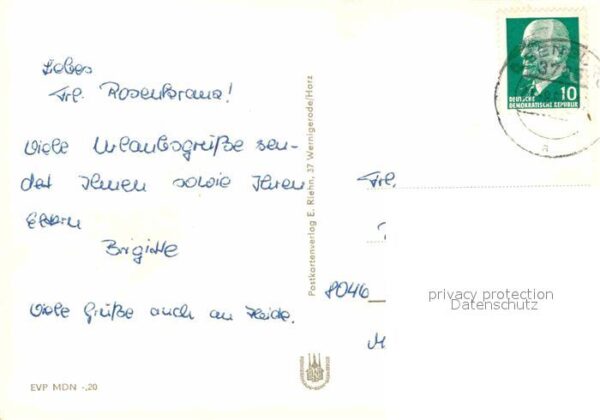 Liebes
Frl. Rosenkranz!
Viele Urlaubsgrüße sen-
det Ihnen sowie Ihren
Eltern
Brigitte
Viele Grüße auch an Heide.
EVP MDN -,20
Postkartenverlag E. Riehn, 37 Wernigerode/Harz
10
DEUTSCHE
DEMOKRATISCHE REPUBLIK
37
a
Frl.
8046
M
privacy protection
Datenschutz